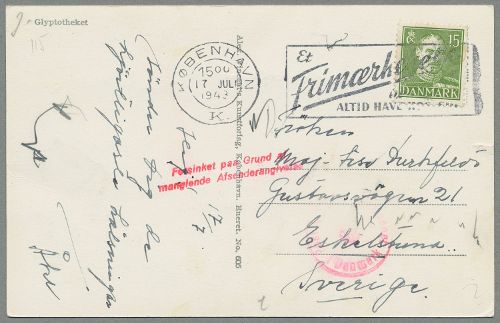 Glyptotheket
115
KØBENHAVN
1500
17 JUL
1943
K.
Et
Frimærke
ALTID HAVE
15
DANMARK
Forsinket paa Grund af
manglende Afsenderangivelse.
17/7
Sänder Dig de
hjärtligaste hälsningar
Fröken
Maj-Lisa
Gustavsvägen 21
Eskilstuna
Sverige.
Kunstforlag, København. Eneret. No. 605